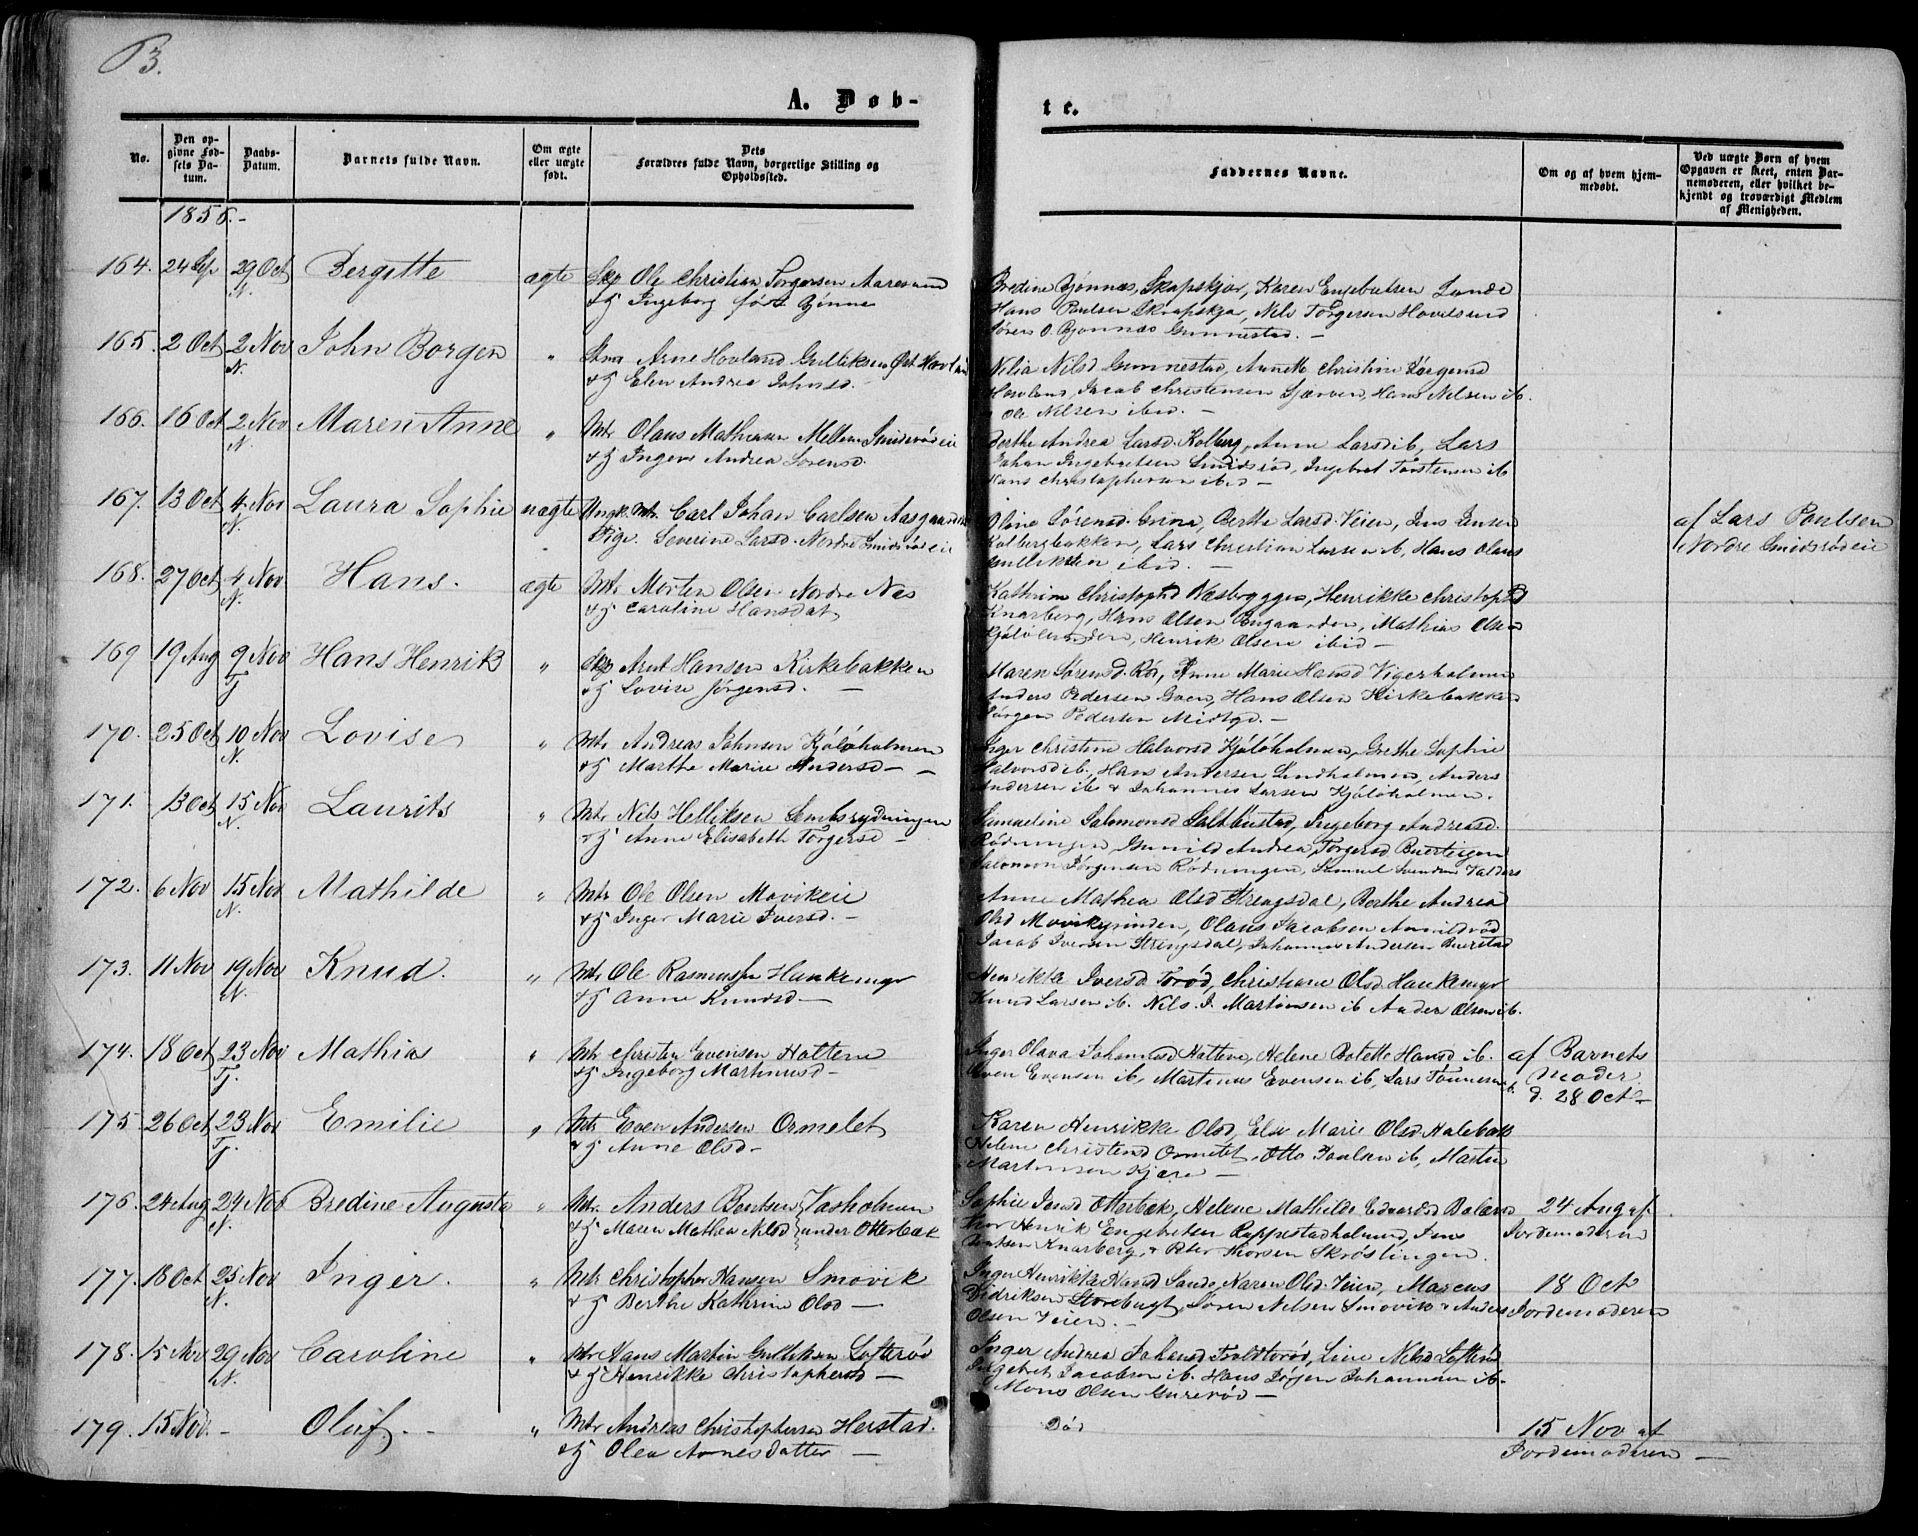 B.
A. Døb-
te.
No.
Den op-
givne Fød-
sels Da-
tum.
Daabs-
Datum.
Barnets fulde Navn.
Om ægte
eller uægte
født.
Dets
Forældres fulde Navn, borgerlige Stilling og
Opholdssted.
Faddernes Navne.
Om og af hvem hjem-
medøbt.
Ved uægte Børn af hvem
Opgaven er skeet, enten Bar-
nemoderen, eller hvilket be-
kjendt og troværdigt Medlem
af Menigheden.
1855.-
164. 24 Sep 29 Oct Bergitte ægte Ole Christian Torgersen Aarøsund
N.
& H Ingeborg født Gjønnes
Bredine Gjønnes, Skapskjær, Karen Engebretsen Lunde
Hans Paulsen Skapskjær, Nils Torgersen Havelsund
Sören O. Gjønnes Gunnestad. -
165. 2 Oct 2 Nov John Borgen " Arne Hovland Gulliksen Øst Hovland
N.
& H Elen Andrea Johnsd. -
Nilia Nilsd Gunnestad, Annette Christine Jørgensd
Howland, Jacob Christensen Hans Nilsen ib.
Ole Nilsen ibid. -
166. 16 Oct 2 Nov Maren Anne " Mtr Olaus Mathiasen Mellem Smidsrødeie
N.
& H Inger Andrea Sörensd.
Berthe Andrea Larsd. Kolberg, Anne Larsd ib, Lars
Johan Ingebretsen Smidsrød, Ingebret Torstensen ib
Hans Christophersen ibid -
167. 13 Oct 4 Nov Laura Sophie uægte Ungk. Mtr. Carl Johan Carlsen Aasgaarden
N.
Pige. Severine Larsd. Nordre Smidsrødeie
Oline Sørensd. Grina, Berthe Larsd. Veien, Jens Jensen
Kolbergbakken, Lars Christian Larsen ib, Hans Olaus
Gulliksen ibid. -
af Lars Poulsen
Nordre Smidsrødeie
168. 27 Oct 4 Nov Hans. ægte Mtr Morten Olsen Nordre Næs
N.
& H Caroline Hansdat
Kathrine Christophd Næsbryggen, Henrikke Christophd
Knarberg, Hans Olsen Mathias Olsen
Henrik Olsen ibid -
169 19 Aug 9 Nov Hans Henrik " Arnt Hansen Kirkebakken
Tj
& H Lovise Jørgensd. -
Maren Sørensd. Röi, Anne Marie Hansd Vigerholmen
Anders Pedersen Goen, Hans Olsen Kirkebakken
Jörgen Pedersen Midtgd. -
170. 25 Oct 10 Nov Lovise " Mtr Andreas Johnsen Kjøløholmen
N.
& H Marthe Marie Andersd - -
Inger Christine Halvorsd Kjøløholmen, Grethe Sophie
Halvorsd ib., Hans Andersen Lindholmen, Anders
Andersen ib & Johannes Larsen Kjøløholmen.
171. 13 Oct 15 Nov Laurits " Mtr Nils Helliksen Sembsrydningen
N.
& H Anne Elisabeth Torgersd -
Samueline Salomonsd Saltbustad, Ingeborg Andreasd.
Rödningen, Gunild Andrea Torgersd Buerstigen
Salomon Jörgensen Rödningen, Samuel Svendsen
172. 6 Nov 15 Nov Mathilde " Mtr Ole Olsen Movikeie
N.
& H Inger Marie Iversd. -
Anne Mathea Olsd Strengsdal, Berthe Andrea
Olsd Movikgrinden, Olaus Jacobsen Arnildrød
Jacob Iversen Strengsdal, Johannes Andersen Buerstad
173. 11 Nov 19 Nov Knud. " Mtr Ole Rasmussen Haukemyr
N.
& H Anne Knudsd -
Henrikke Iversd Torød, Christiane Olsd. Haukemyr
Knud Larsen ib. Nils J. Martinsen ib Anders Olsen ib.
174. 18 Oct 23 Nov Mathias " Mtr Christen Evensen Holtene
Tj.
& H Ingeborg Martinusd -
Inger Olava Johannesd Holtene, Helene Bolette Hansd ib.
Even Evensen ib, Martinus Evensen ib, Lars Tönnesen ib.
af Barnets
Moder
d. 28 Oct -
175 26 Oct 23 Nov Emilie " Mtr Even Andersen Ormelet
Tj.
& H Anne Olsd -
Karen Henrikke Olsd, Else Marie Olsd. Holebak
Helene Christensd Ormelet, Otto Paulsen ib, Martin
Martinsen Kjære -
176. 24 Aug 24 Nov Bredine Augusta " Mtr. Anders Berntsen Vasholmen
N.
& H Maren Mathea Nilsd under Otterbæk
Sophie Jensd Otterbæk, Helene Mathilde Edvardsd Bolærn
Thor Henrik Engebretsen Rappestadholmen, Jens
Berntsen Knarberg, & Peter Thorsen Skrøslingen.
24 Aug af
Jordemoderen
177. 18 Oct 25 Nov Inger. " Mtr Christopher Hansen Smovik
N.
& H Berthe Kathrine Olsd -
Inger Henrikke Hansd Sande, Karen Olsd. Veien, Marcus
Didriksen Storebugt, Sören Nilsen Smovik & Anders
Olsen Veien. -
18 Oct
Jordemoderen
178. 15 Nov 29 Nov Caroline " Mtr Hans Martin Gulliksen Lofterød
N.
& H Henrikke Christophersd -
Inger Andrea Johansd Line Nilsd Lofterød
Ingebret Jacobsen ib. Hans Jörgen Johannsen ib.
Mons Olsen Gurerød -
179. 15 Nov. - Oluf. - " Mtr Andreas Christophersen Herstad.
& H Olea Arnesdatter -
Død
15 Nov af
Jordemoderen -